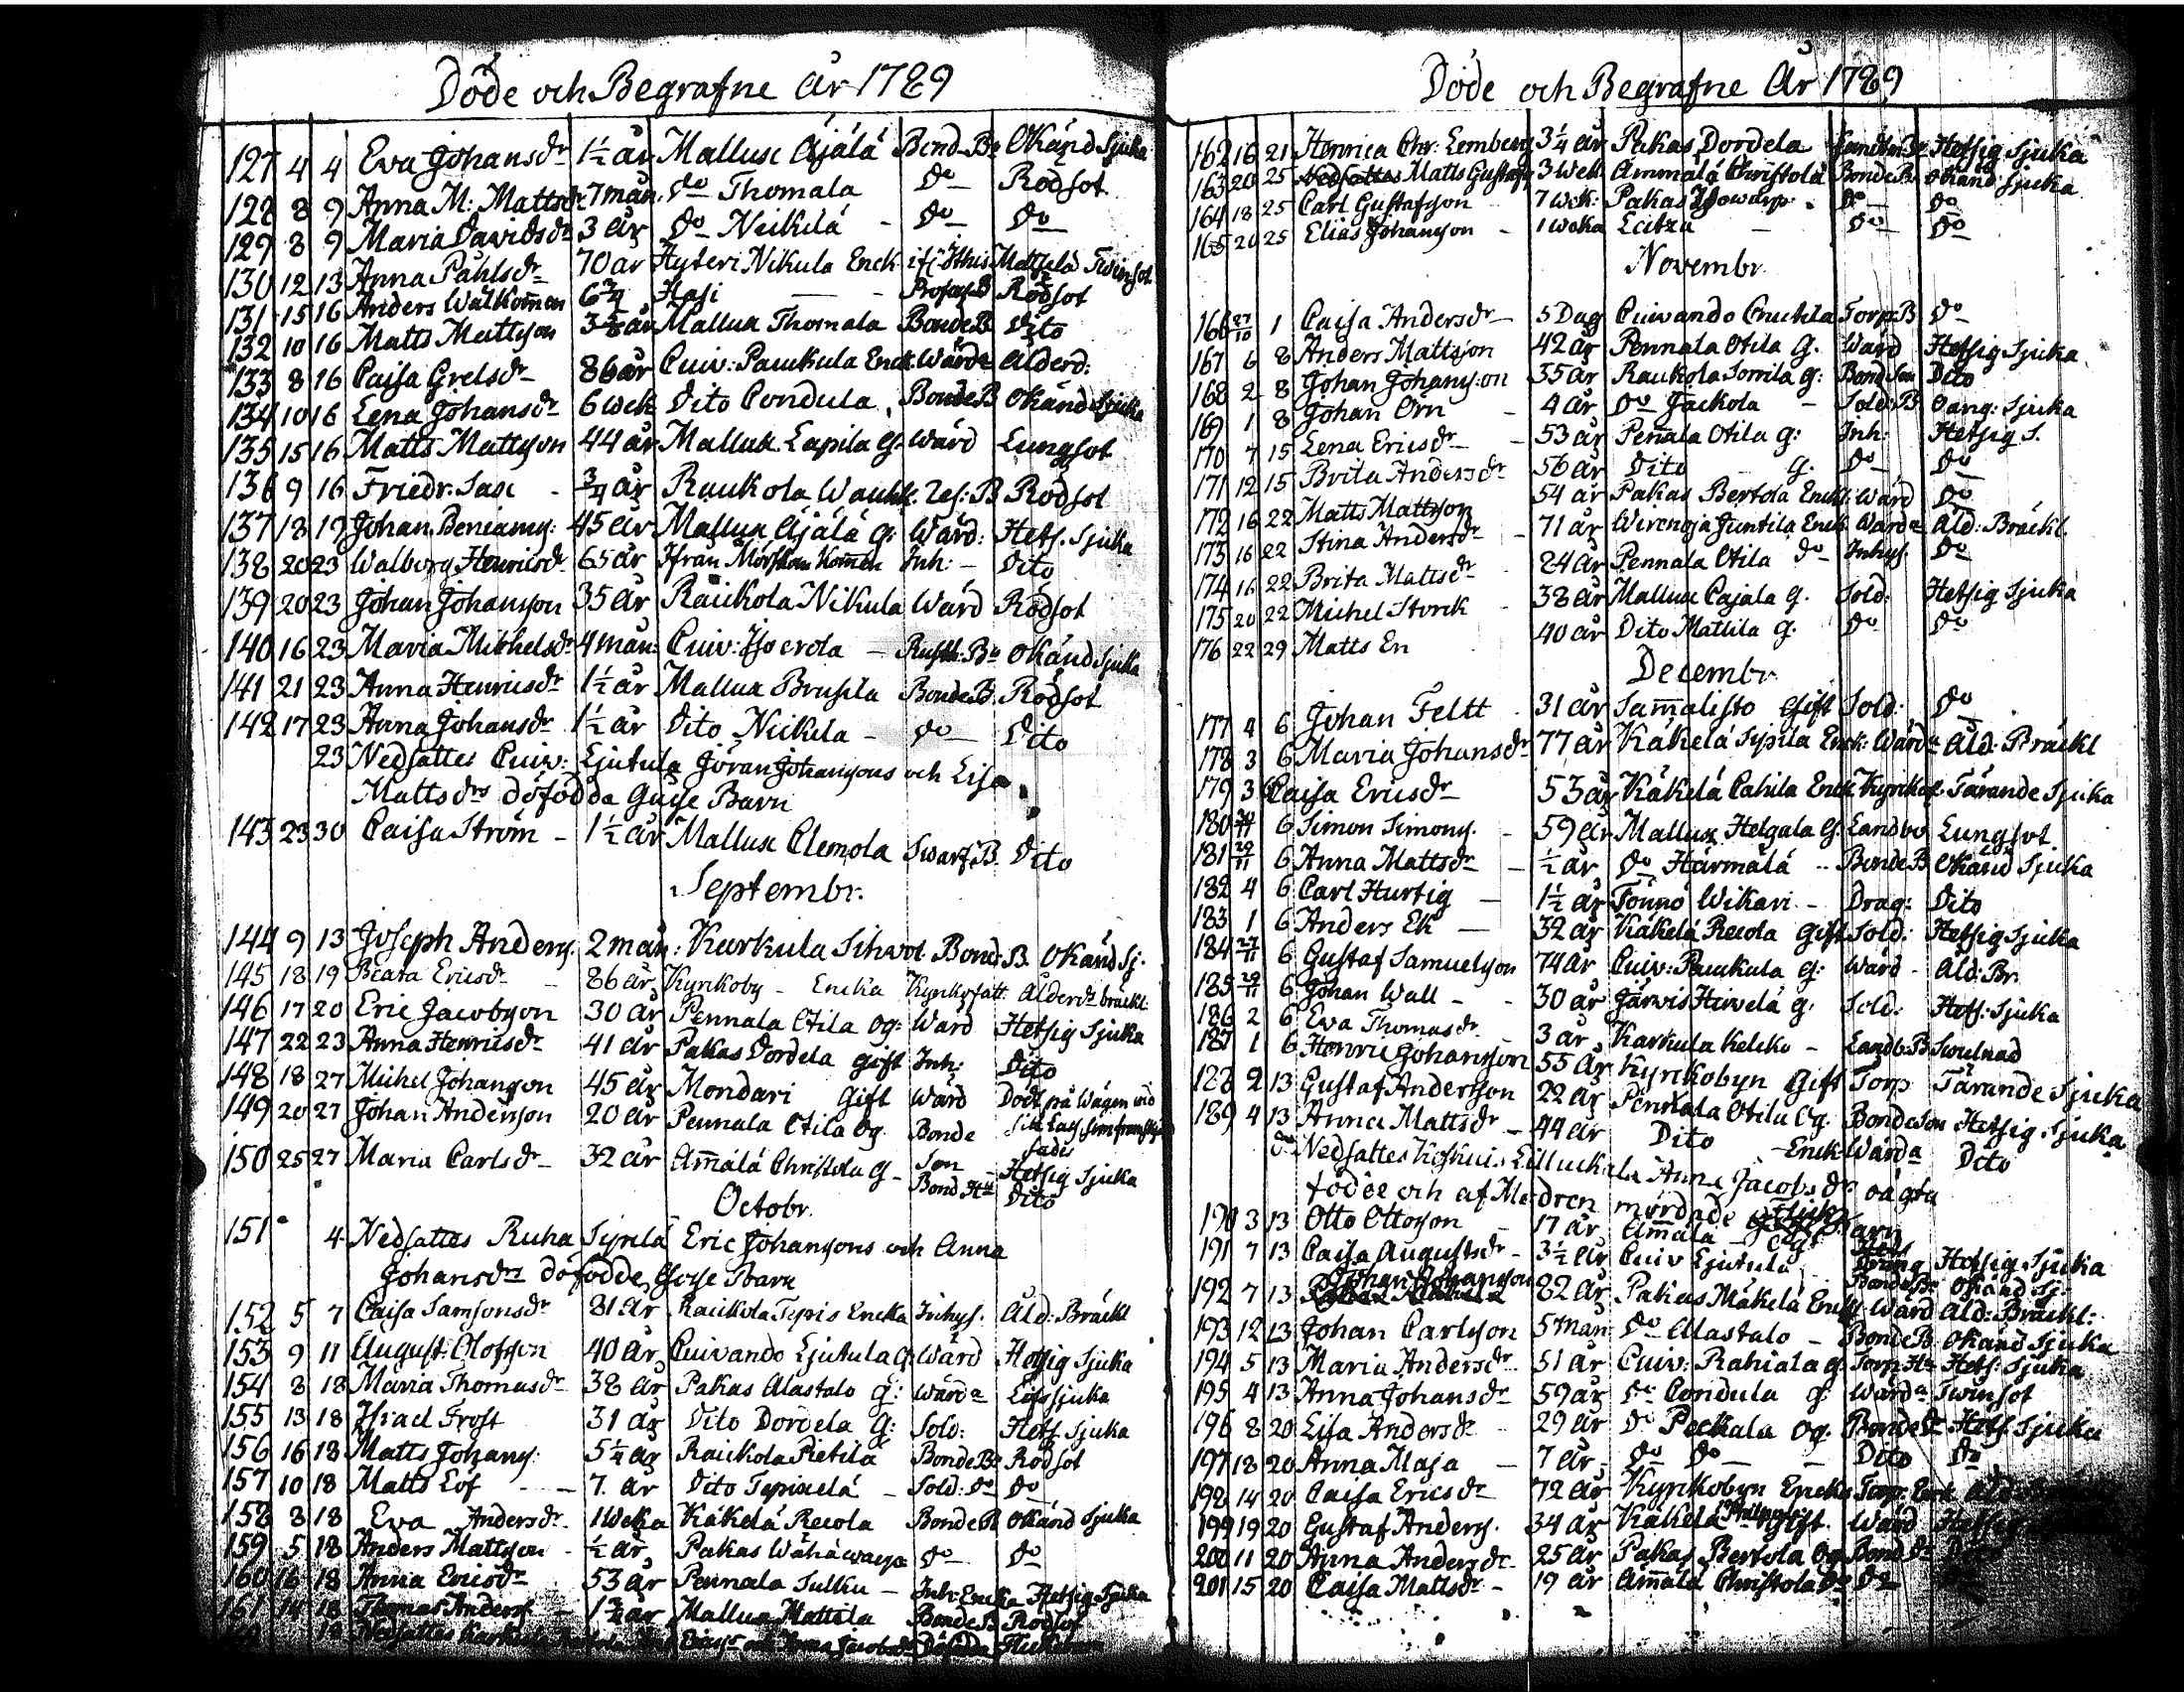 Döde och Begrafne År 1789
127 4 4 Eva Johansdr 1½ år Mallusx Äjälä Bond. Br Okänd Sjuka
128 8 9 Anna M: Mattsdr 7 mån. do Thomala do Rödsot
129 8 9 Maria Davidsdr 3 år do Neikilä - do do
130 12 13 Anna Påhlsdr 70 år Hyteri Nikula Enck. Twinsot
131 15 16 Anders Wälkomen 6¾ Hasi Rödsot
132 10 16 Matts Mattson år Mallux Thomala Bonde B. Dito
133 8 16 Caisa Grelsdr 86 år Cuiv: Paukula Enck. Wärda Ålderd:
134 10 16 Lena Johansdr 6 wek Dito Condula Bonde B Okänd Sjuka
135 15 16 Matts Mattson 44 år Mallux Lapila G. Wärd Lungsot
136 9 16 Friedr. Sax - ¾ år Raukola B Rödsot
137 18 19 Johan Beniams: 45 år Mallux Äjälä G. Wärd: Hets. Sjuka
138 20 23 Walborg Henricsdr 65 år Ifrån Inh: - Dito
139 20 23 Johan Johansson 35 år Raukola Nikula Wärd Rödsot
140 16 23 Maria Mickelsdr 4 mån: Cuiv: - Okänd Sjuka
141 21 23 Anna Henricsdr 1½ år Mallux Brusila Bonde B. Rödsot
142 17 23 Anna Johansdr 1½ år Dito Neikila - do Dito
23 Nedsattes Cuiv: Ljutula Göran Johansons och Lisa
Mattsdrs döfödda Gosse Barn
143 23 30 Caisa Ström - 1½ år Mallux Clemola Swarf. B. Dito
Septembr.
144 9 13 Joseph Anders. 2 mån: Karkula Sihvol Bond. B. Okänd Sj.
145 18 19 Beata Ericsdr - 86 år Kyrkoby - Encka Ålderd: bräckl:
146 17 20 Eric Jacobson 30 år Pennala Otila og: Wärd Hetsig Sjuka
147 22 23 Anna Henricsdr 41 år Pakas Dordela gift Inh: Dito
148 18 27 Michel Johanson 45 år Mondari Gift Wärd Dödt på Wägen
149 20 27 Johan Anderson 20 år Pennala Otila og. Bonde Son Hetsig Sjuka
150 25 27 Maria Carlsdr 32 år Ammälä Christola G - Bond Hu Dito
Octobr.
151 4 Nedsattes Ruha Sipilä Eric Johansons och Anna
Johansdrs döfödde Gosse Barn
152 5 7 Caisa Samsonsdr 81 år Raukola Encka Inhys. Åld: Bräckl
153 9 11 August: Olofsson 40 år Cuivando Ljutula G: Wärd Hetsig Sjuka
154 8 18 Maria Thomasdr 38 år Pakas Alastalo G: Wärda
155 13 18 Israel Frost 31 år Dito Dordela G: Sold: Hets. Sjuka
156 16 18 Matts Johans: 5¼ år Raukola Pietilä Bonde Br Rödsot
157 10 18 Matts Löf - 7. år Dito - Sold: do do
158 8 18 Eva Andersdr. 1 Weka Käkelä Recola Bonde B Okänd Sjuka
159 5 18 Anders Mattson - ½ år Pakas do do
160 16 18 Anna Ericsdr 53 år Pennala Sulku - Inh: Encka Hetsig Sjuka
161 14 18 Thomas Anders 1¾ år Mallux Mattila Bonde B Rödsot
18 Nedsattes
Döde och Begrafne År 1789
162 16 21 Henrica Chr: Lemberg 3¼ år Pakas Dordela Hetsig Sjuka
163 20 25 Matts Gustafs 3 Wek Ammälä Christola Bonde B. Okänd Sjuka
164 18 25 Carl Gustafson 7 wek: Pakas do do
165 20 25 Elias Johanson - 1 weka do do
Novembr.
166 27/10 1 Caisa Andersdr 5 Dag Cuivando Torp. B do
167 6 8 Anders Mattson 42 år Pennala Otila G. Wärd Hetsig Sjuka
168 2 8 Johan Johanson 35 år Raukola G: Bond Son Dito
169 1 8 Johan Örn - 4 år do Jackola - Sold: B. Oang: Sjuka
170 7 15 Lena Ericsdr - 53 år Pennala Otila G: Inh: Hetsig S.
171 12 15 Brita Andersdr 56 år Dito G. do do
172 16 22 Matts Mattson 54 år Pakas Bertola Enckl. Wärd do
173 16 22 Stina Andersdr - 71 år Wirenoja Juntila Enck. Wärda Åld: Bräckl.
174 16 22 Brita Mattsdr 24 år Pennala Otila do Inhys. do
175 20 22 Michel Storck 38 år Mallux Cajala G. Sold: Hetsig Sjuka
176 22 29 Matts En 40 år Dito Mattila G. do do
Decembr.
177 4 6 Johan Feltt 31 år Sammalisto Gift Sold: do
178 3 6 Maria Johansdr 77 år Käkelä Sipila Enck: Wärda Åld: Bräckl
179 3 6 Caisa Ericsdr 53 år Käkelä Enck Tärande Sjuka
180 6 Simon Simons. - 59 år Mallux Helgala G. Landbo Lungsot
181 29/11 6 Anna Mattsdr - ½ år do Härmälä - Bonde B Okänd Sjuka
182 4 6 Carl Hurtig - 1½ år Tönnö Wikari - Drag: Dito
183 1 6 Anders Ek - 32 år Käkelä Recola Gift Sold: Hetsig Sjuka
184 27/11 6 Gustaf Samuelson 74 år Cuiv: Paukula G: Wärd - Åld: Br.
185 29/11 6 Johan Wall - - 30 år Järvis Hirvelä G. Sold: Hets: Sjuka
186 2 6 Eva Thomasdr 3 år Karkula Kelcko - Landb: B Swulnad
187 1 6 Henric Johanson 55 år Kyrkobyn Gift Torp Tärande Sjuka
188 2 13 Gustaf Anderson 22 år Pennala Otila Og. Bonde Son Hetsig Sjuka
189 4 13 Anna Mattsdr - 44 år Dito Enck Wärda Dito
do Nedsattes Anna Jacobsdrs oägta
födde och af Modren mördade
190 3 13 Otto Ottoson - 17 år Ammälä - Og: Dräng Hetsig Sjuka
191 7 13 Caisa Augustsdr - 3½ år Cuiv Ljutula Bonde Br Okänd Sj.
192 7 13 Johan Johanson 82 år Pakas Mäkelä Enckl Wärd Åld: Bräckl:
193 12 13 Johan Carlson 5 mån do Alastalo - Bonde B Okänd Sjuka
194 5 13 Maria Andersdr 51 år Cuiv: Rahiala G. Torp. Hu Hets: Sjuka
195 4 13 Anna Johansdr 59 år do Condula G: Wärda Twinsot
196 8 20 Lisa Andersdr 29 år do Peckala Og. Bonde Dr Hets. Sjuka
197 18 20 Anna Maja - 7 år do do - Dito do
198 14 20 Caisa Ericsdr 72 år Kyrkobyn Encka
199 19 20 Gustaf Anders. 34 år Käkelä Gift Wärd Hetsig
200 11 20 Anna Andersdr 25 år Pakas Bertola Og Bond Dr Dito
201 15 20 Caisa Mattsdr - 19 år Ammälä Christola do do